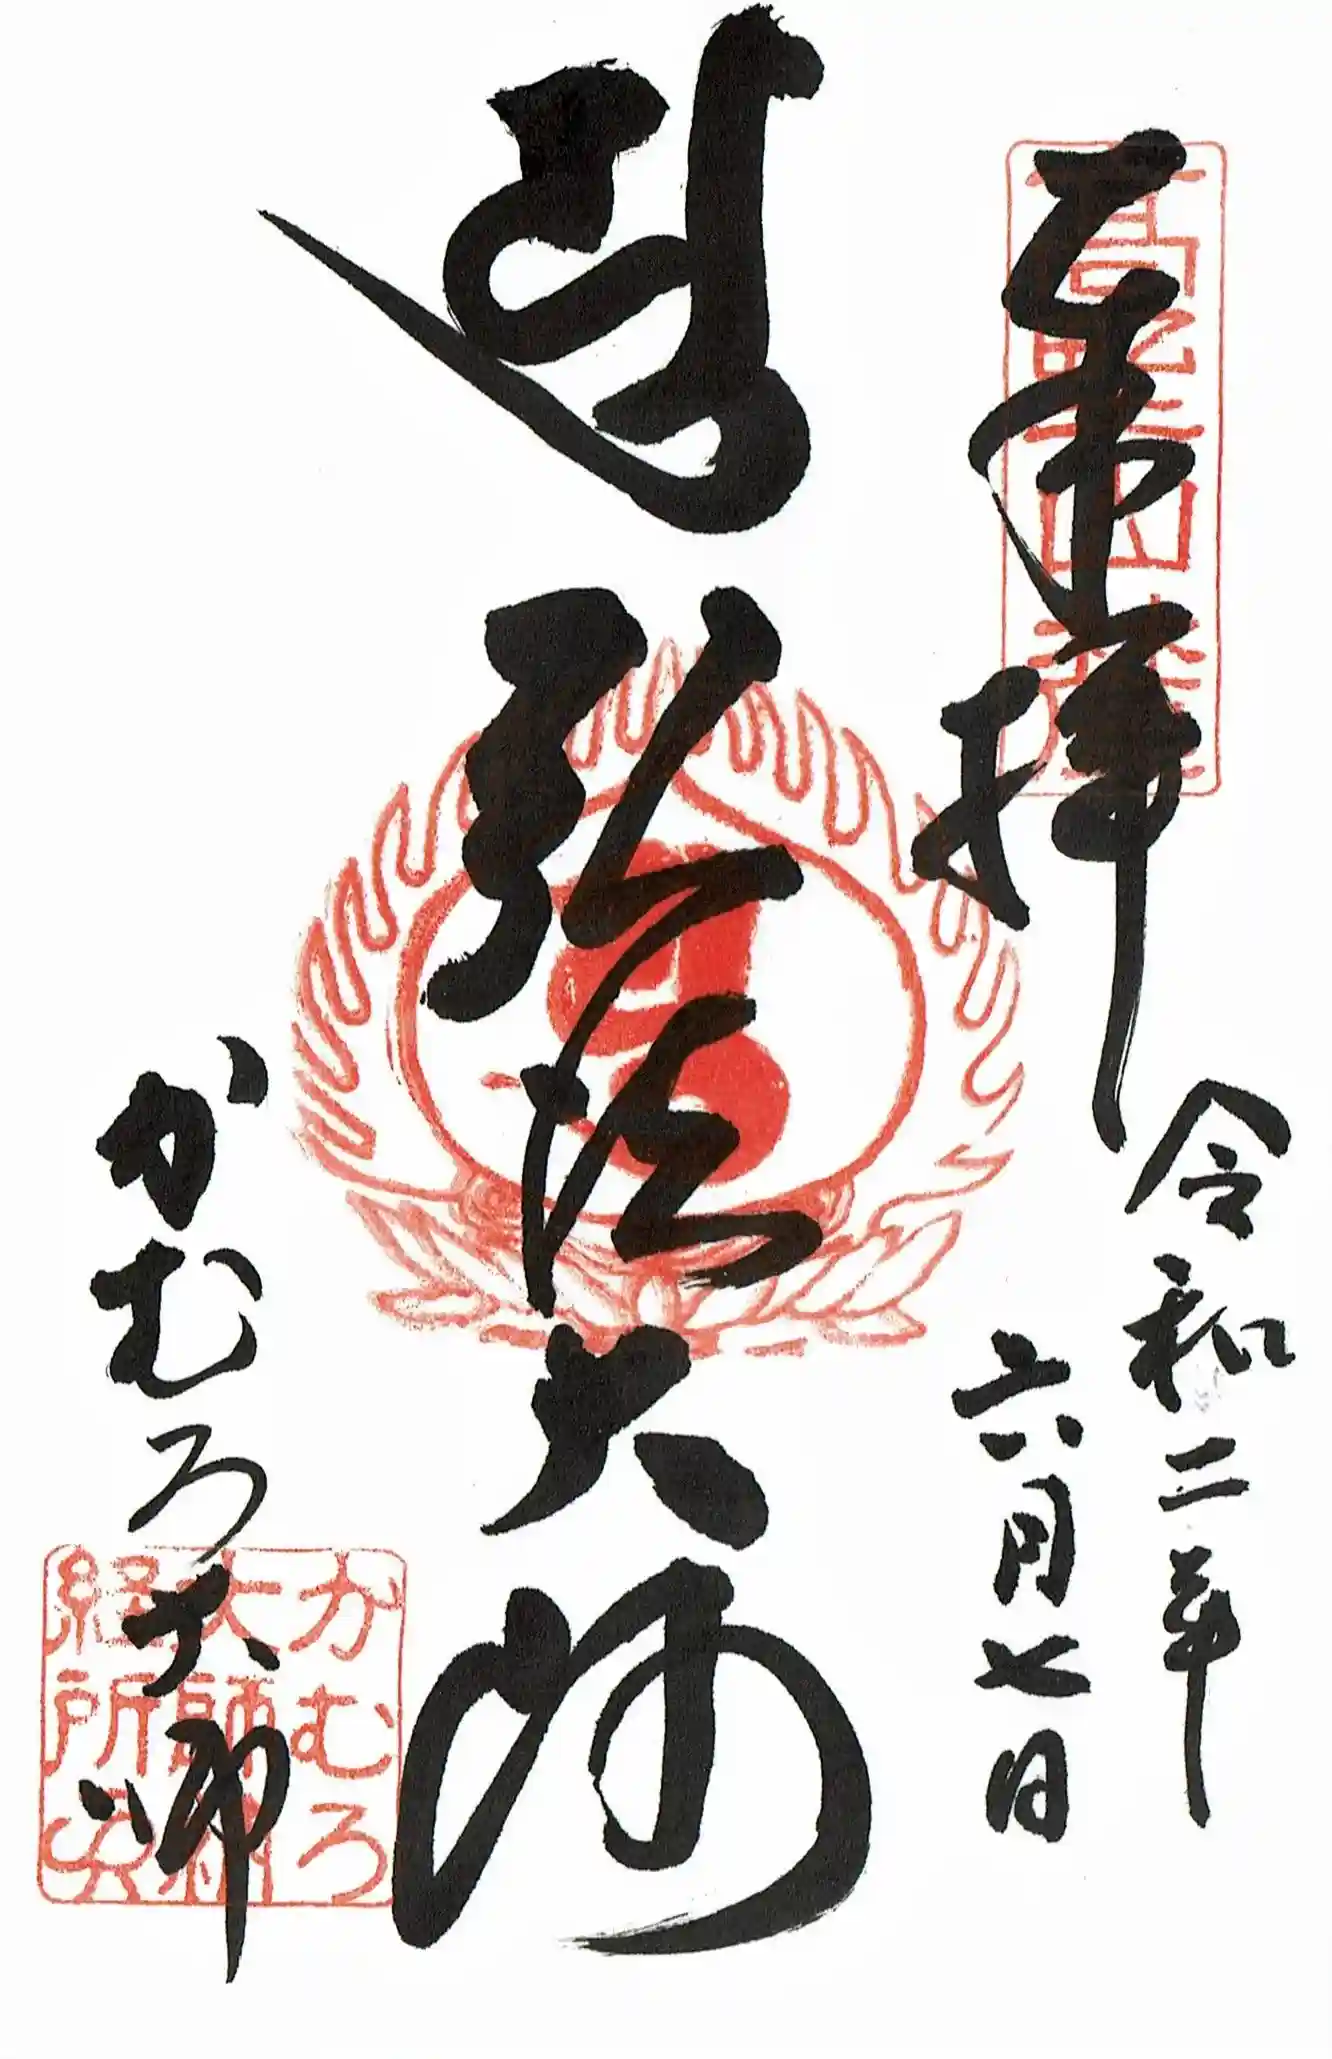 奉拝
高野山麓
令和二年
六月七日
弘法大師
かむろ大師
かむろ
大師納
経所